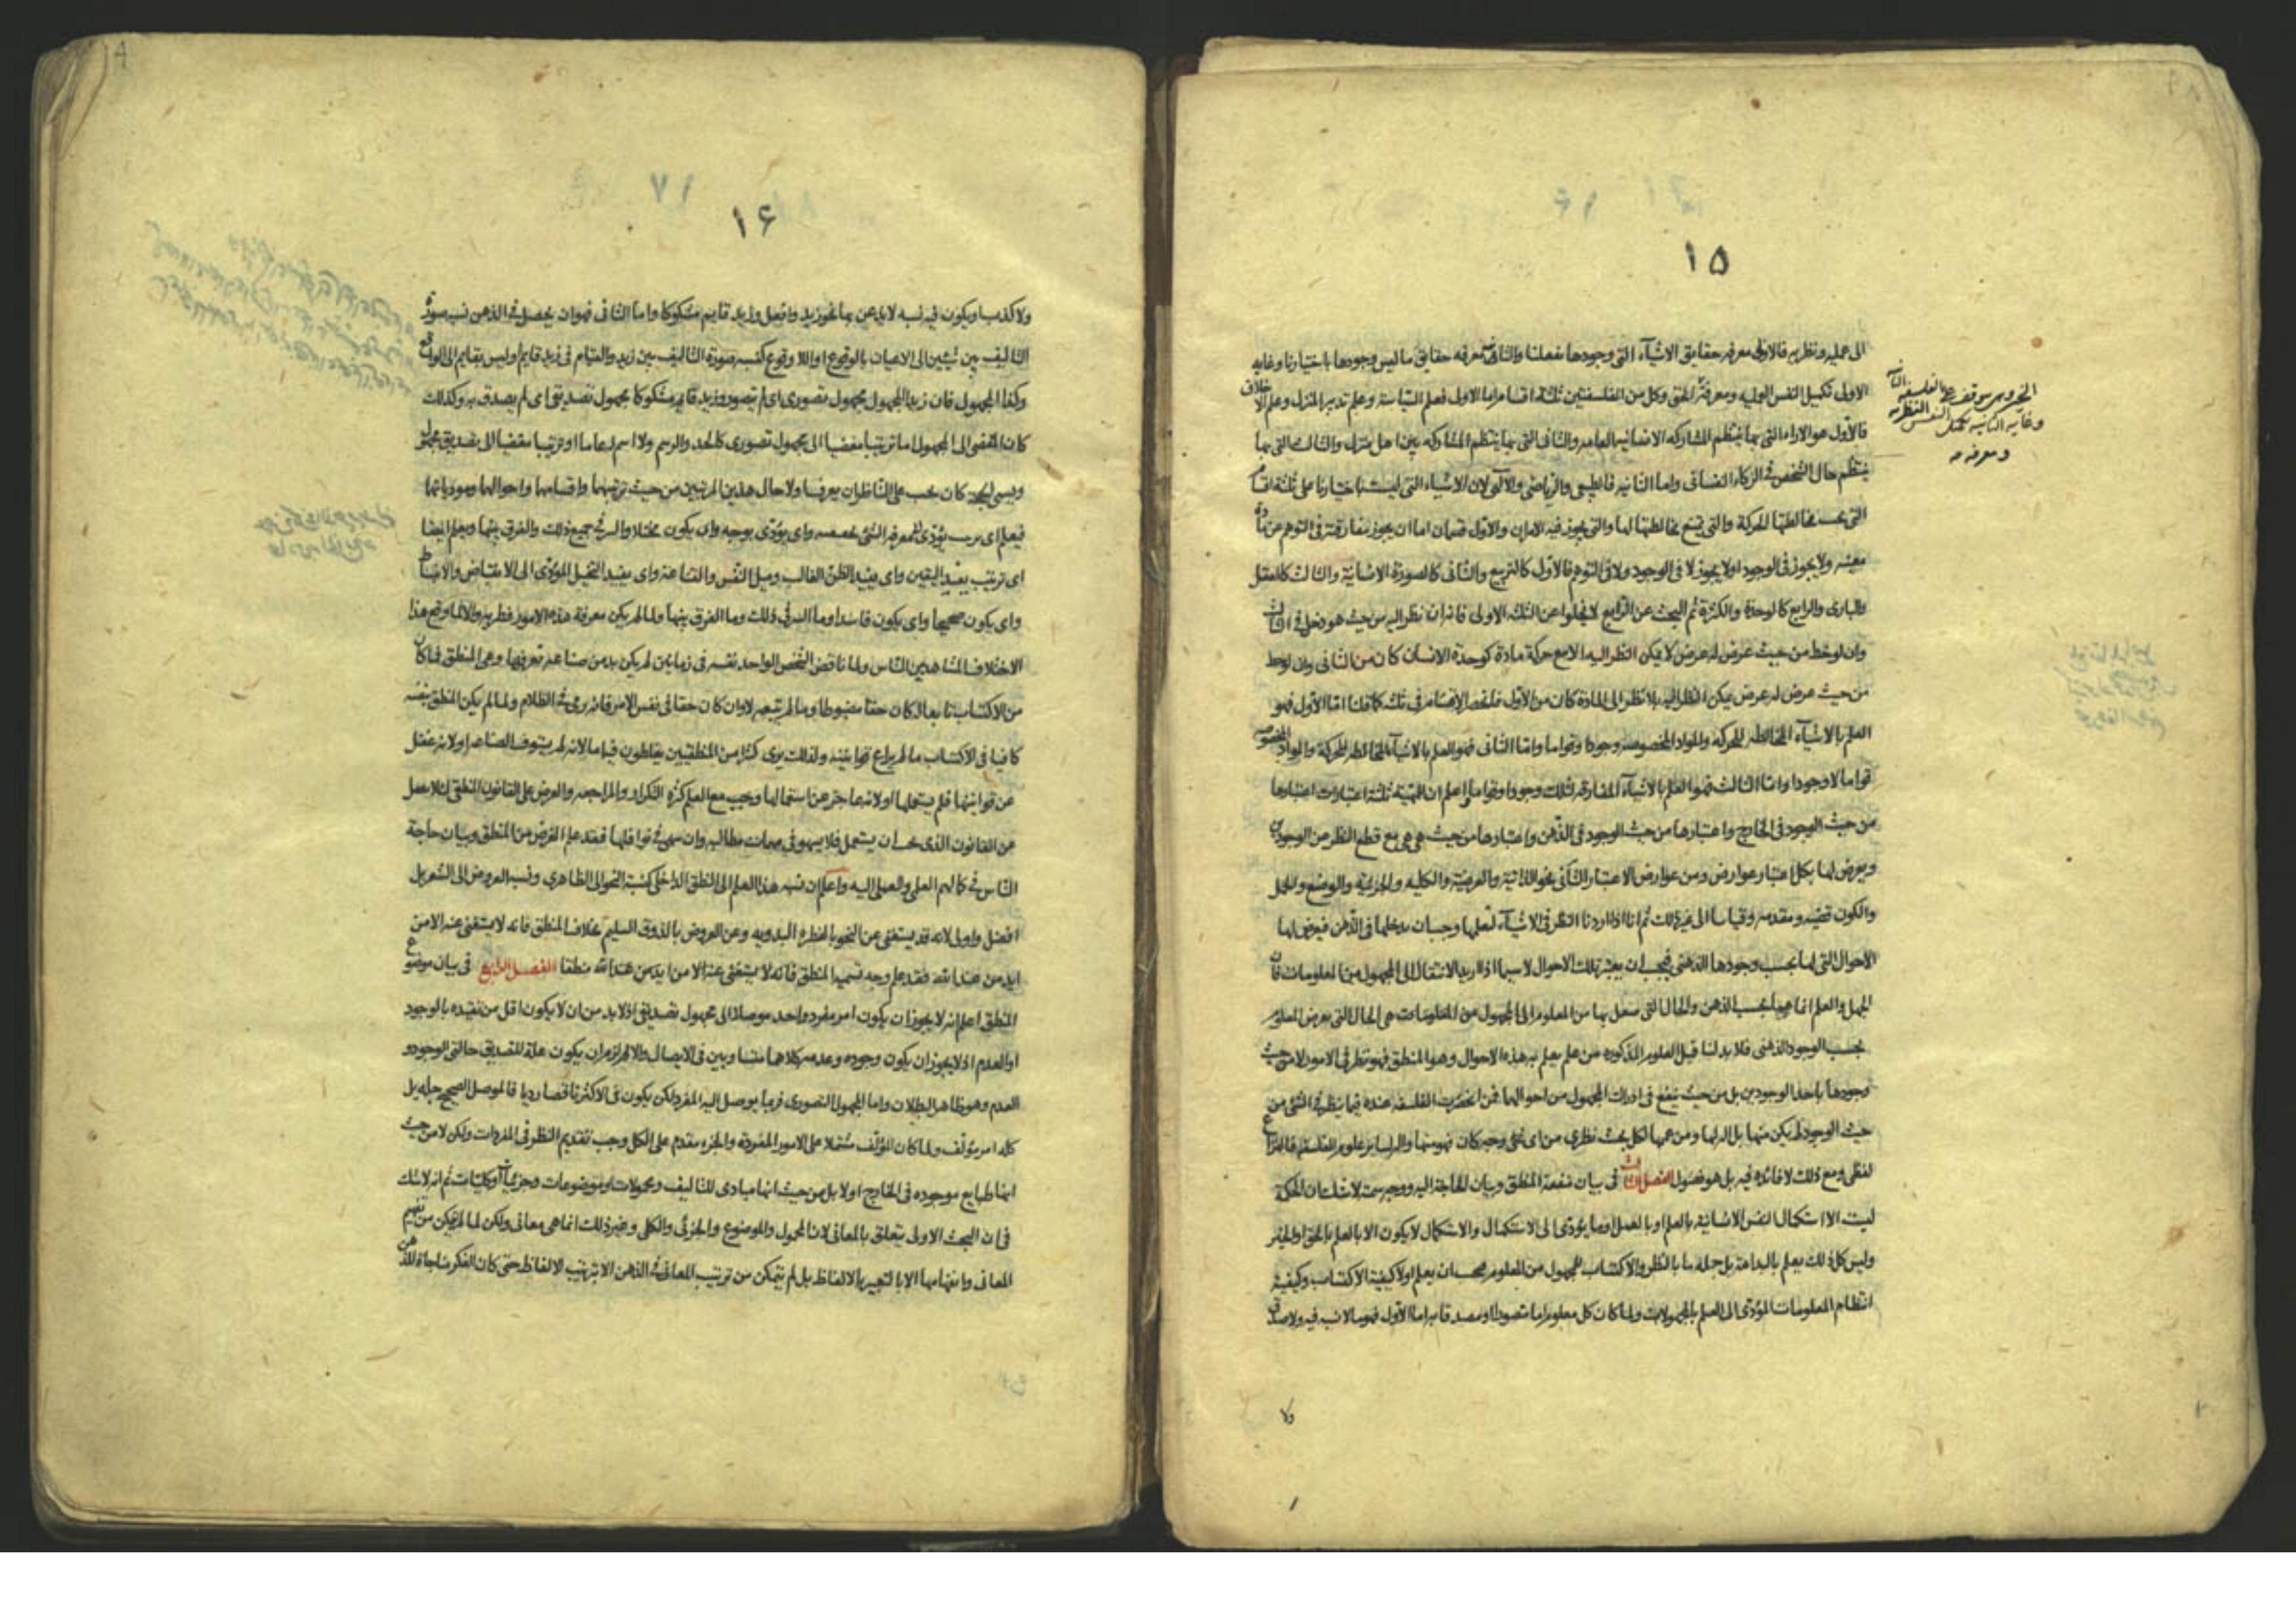 ١٥
الى عملية ونظرية فالاولى معرفة حقايق الاشياء التى وجودها بفعلنا والثانى معرفة حقايق ما ليس وجودها باختيارنا وغاية
الاولى تكميل النفس العملية ومعرفة الحق وكل من الفلسفتين ثلثة اقسام اما الاولى فعلم السياسة وعلم تدبير المنزل وعلم الاخلاق
فالاول هو الاراء التى بها ينتظم المشاركة الانسانية العامة والثانى التى بها ينتظم المشاركة بين اهل منزل والثالث التى بها
ينتظم حال الشخص فى الزكاء النفسانى واما الثانية فالطبيعى والرياضى والالهى لان الاشياء التى ليست باختيارنا على ثلثة اقسام
التى يجب مخالطتها الحركة والتى يمتنع مخالطتها لها والتى يجوز فيه الامران والاول قسمان اما ان يجوز مفارقته فى التوهم عن مادة
معينة ولا يجوز فى الوجود او لا يجوز لا فى الوجود ولا فى التوهم فالاول كالتربيع والثانى كالصورة الانسانية والثالث كالعقل
والبارى والرابع كالوحدة والكثرة ثم البحث عن الرابع لا يخلوا عن الثلثة الاولى فانه ان نظر اليه من حيث هو دخل فى الثالث
وان لوحظ من حيث عرض له عرض لا يمكن النظر اليه الا مع حركة مادة كوحدة الانسان كان من الثانى وان لوحظ
من حيث عرض له عرض يمكن النظر اليه بلا نظر الى المادة كان من الاول فلنحصر الاقسام فى ثلثة كما قلنا اما الاول فهو
العلم بالاشياء المخالطة للحركة والمواد المخصوصة وجودا وقواما واما الثانى فهو العلم بالاشياء المخالطة للحركة والمواد المخصوصة
قواما لا وجودا واما الثالث فهو العلم بالاشياء المفارقة لذلك وجودا وقواما واعلم ان للمهية ثلثة اعتبارات اعتبارها
من حيث الوجود فى الخارج واعتبارها من حيث الوجود فى الذهن واعتبارها من حيث هى هى مع قطع النظر عن الوجودين
ويعرض لها بكل اعتبار عوارض ومن عوارض الاعتبار الثانى نحو الذاتية والعرضية والكلية والجزئية والوضع والحمل
والكون قضية ومقدمة وقياسا الى غير ذلك ثم انا اذا اردنا النظر فى الاشياء لنعلمها وجب ان ندخلها فى الذهن فيعرض لها
الاحوال التى لها بحسب وجودها الذهنى فيجب ان يعتبر تلك الاحوال لا سيما اذا اريد الانتقال الى المجهول من المعلومات فان
الجهل والعلم انما هما بحسب الذهن والحال التى ننتقل بها من المعلوم الى المجهول من المعلومات هى الحال التى يعرض المعلوم
بحسب الوجود الذهنى فلا بد لنا قبل العلوم المذكورة من علم يعلم به هذه الاحوال وهو المنطق فهو نظر فى الامور لا من حيث
وجودها باحد الوجودين بل من حيث ينفع فى ادراك المجهول من احوالها فمن انحصرت الفلسفة عنده فيما ينظر فى الشئ من
حيث الوجود لم يكن منها بل الة لها ومن عمها لكل بحث نظرى من اى نحو وجه كان فهو منها والة لساير علوم الفلسفة فالنزاع
لفظى ومع ذلك لا فائدة فيه بل هو فضول الفصل الثالث فى بيان منفعة المنطق وبيان الحاجة اليه ووجه تسميته لا شك ان الحكمة
ليست الا استكمال النفس الانسانية بالعلم او بالعمل او ما يؤدى الى الاستكمال والاستكمال لا يكون الا بالعلم بالحق او الخير
وليس كل ذلك يعلم بالبداهة بل جلة ما بالنظر والاكتساب للمجهول من المعلوم يجب ان يعلم اولا كيفية الاكتساب وكيفية
انتظام المعلومات المؤدى الى العلم بالمجهولات ولما كان كل معلوم اما متصورا او مصدقا به اما الاول فهو ما لا نسبة فيه ولا صدق
ولا
وغاية الثانية تكميل النفس النظرية
ومعرفة
١۶
ولا كذب او يكون فيه نسبة لا يذعن بها نحو زيد وافعل وزيد قايم مشكوكا واما الثانى فهو ان يحصل فى الذهن نسبة صورة
التاليف بين شيئين الى الاعيان بالوقوع او اللا وقوع كنسبة صورة التاليف بين زيد والقيام فى زيد قايم او ليس بقايم الى الواقع
وكذا المجهول فان زيدا المجهول مجهول تصورى اى لم يتصور وزيد قايم مشكوكا مجهول تصديقى اى لم يصدق به وكذلك
كان المفضى الى المجهول اما ترتيبا مفضيا الى مجهول تصورى كالحد والرسم ولا اسم له عاما او ترتيبا مفضيا الى تصديق مجهول
ويسمى الحجة كان يجب على الناظر ان يعرف اولا حال هذين المرتبين من حيث ترتيبهما واقسامهما واحوالهما وموديا تهما
فيعلم اى مرتب يؤدى لمعرفة الشئ بخصوصه واى يؤدى بوجه واى يكون مختلا والسر فى جميع ذلك والفرق بينها ويعلم ايضا
اى ترتيب يفيد اليقين واى يفيد الظن الغالب وميل النفس والقناعة واى يفيد التخيل المؤدى الى الانقباض والانبساط
واى يكون صحيحا واى يكون فاسدا وما السر فى ذلك وما الفرق بينها ولما لم يكن معرفة هذه الامور فطرية والا لما وقع هذا
الاختلاف المشاهد بين الناس ولما ناقض الشخص الواحد نفسه فى زمانين لم يكن بد من صناعة تعرفها وهى المنطق فما كان
من الاكتساب تابعا له كان حقا مضبوطا وما لم يتبعه لا وان كان حقا فى نفس الامر فانه رمى فى الظلام ولما لم يكن المنطق بنفسه
كافيا فى الاكتساب ما لم يراع قوانينه ولذلك يرى كثيرا من المنطقيين يغلطون فيها ما لانه لم يستوف الصناعة او لانه غفل
عن قوانينها فلم يستعملها او لانه عاجز عن استعمالها وجب مع العلم كثرة التكرار والمراجعة والعرض على القانون المنطقى لئلا يغفل
عن القانون الذى يجب ان يستعمل فلا يسهو فى مهمات مطالبه وان سهى فى نوافلها فقد علم الغرض من المنطق وبيان حاجة
الناس فى كمالهم العلمى والعملى اليه واعلم ان نسبة هذا العلم الى النطق الداخلى كنسبة النحو الى الظاهرى ونسبة العروض الى الشعر بل
افضل واولى لانه قد يستغنى عن النحو بالفطرة البدوية وعن العروض بالذوق السليم بخلاف المنطق فانه لا يستغنى عنه الا من
ايد من عند الله فقد علم وجه تسمية المنطق فانه لا يستغنى عنه الا من ايد من عند الله منطقا الفصل الرابع فى بيان موضوع
المنطق اعلم انه لا يجوز ان يكون امر مفرد واحد موصلا الى مجهول تصديقى اذ لا بد من ان لا يكون اقل من تقيده بالوجود
او العدم اذ لا يجوز ان يكون وجوده وعدمه كلاهما متساويين فى الايصال والا لم لزم ان يكون علة للتصديق حالتى الوجود و
العدم وهو ظاهر البطلان واما المجهول التصورى فربما يوصل اليه المفرد لكن يكون فى الاكثر ناقصا رديا فالموصل الصحيح جله بل
كله امر مؤلف ولما كان المؤلف مشتملا على الامور المفردة والجزء مقدم على الكل وجب تقديم النظر فى المفردات ولكن لا من حيث
انها طبايع موجودة فى الخارج او لا بل من حيث انها مبادى للتاليف ومحمولات وموضوعات وجزئيات وكليات ثم انه لا شك
فى ان البحث الاولى يتعلق بالمعانى لان المحمول والموضوع والجزئى والكلى وغير ذلك انما هى معانى ولكن لما لم يمكن من تفهيم
المعانى وافهامها الا بالتعبير بالالفاظ بل لم يتمكن من ترتيب المعانى فى الذهن الا بترتيب الالفاظ حتى كان الفكر مناجاة للذهن